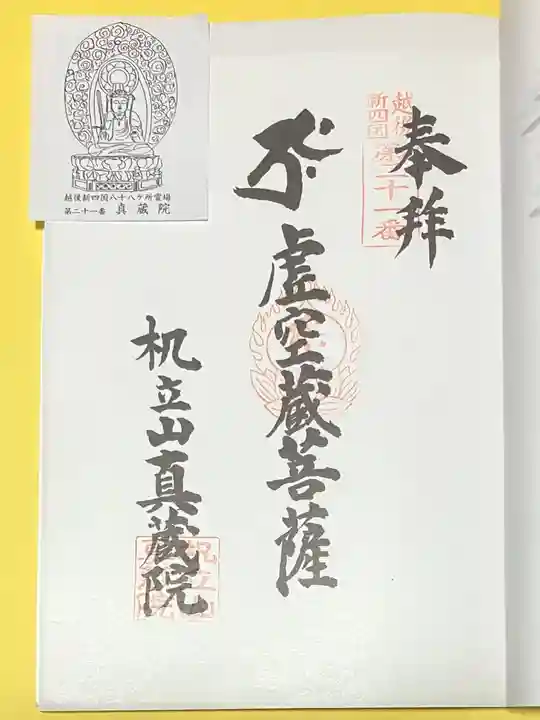 奉拝
越後
新四国
第二十一番
虚空蔵菩薩
机立山真蔵院
越後新四国八十八ケ所霊場
第二十一番 真蔵院